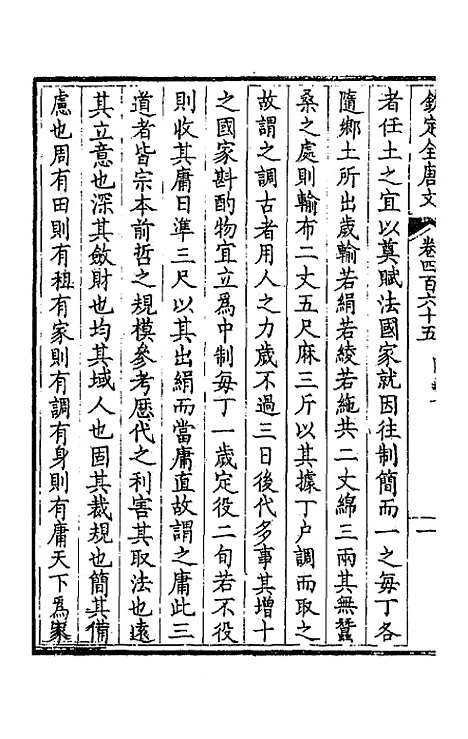 欽定全唐文 卷四百六十五
者任土之宜以奠賦法國家就因往制簡而一之每丁各
隨鄉土所出歲輸若絹若綾若絁共二丈綿三兩其無蠶
桑之處則輸布二丈五尺麻三斤以其據丁戶調而取之
故謂之調古者用人之力歲不過三日後代多事其增十
之國家斟酌物宜立爲中制每丁一歲定役二旬若不役
則收其庸日準三尺以其出絹而當庸直故謂之庸此三
道者皆宗本前哲之規模參考歷代之利害其取法也遠
其立意也深其斂財也均其域人也固其裁規也簡其備
慮也周有田則有租有家則有調有身則有庸天下爲家